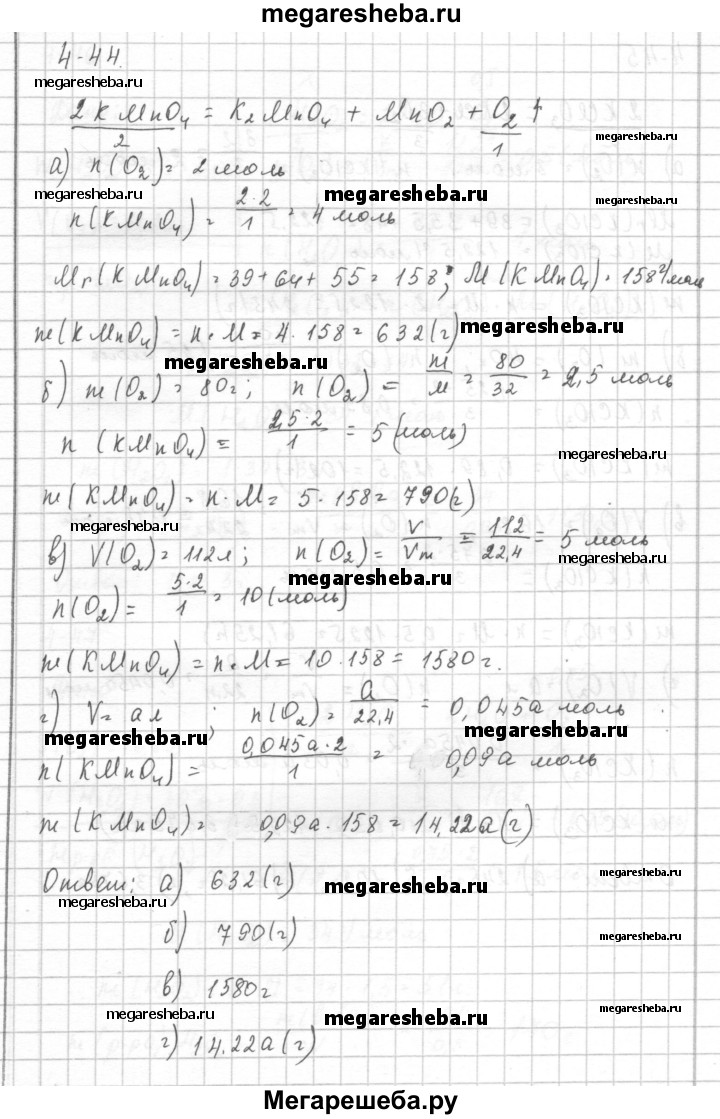 megaresheba.ru
4-44.
megaresheba.ru megaresheba.ru
2KMnO₄/2 = K₂MnO₄ + MnO₂ + O₂/1 ↑
megaresheba.ru megaresheba.ru
а) n(O₂) = 2 моль
megaresheba.ru megaresheba.ru megaresheba.ru
n(KMnO₄) = 2·2/1 = 4 моль
Mr(KMnO₄) = 39+64+55 = 158; M(KMnO₄) = 158 г/моль
m(KMnO₄) = n·M = 4·158 = 632(г) megaresheba.ru
megaresheba.ru
б) m(O₂) = 80г; n(O₂) = m/M = 80/32 = 2,5 моль
n(KMnO₄) = 2,5·2/1 = 5 (моль)
megaresheba.ru
m(KMnO₄) = n·M = 5·158 = 790(г)
megaresheba.ru
в) V(O₂) = 112л; n(O₂) = V/Vm = 112/22,4 = 5 моль
megaresheba.ru megaresheba.ru
n(O₂) = 5·2/1 = 10(моль)
m(KMnO₄) = n·M = 10·158 = 1580г.
г) V = а л; n(O₂) = а/22,4 = 0,045а моль
megaresheba.ru megaresheba.ru
n(KMnO₄) = 0,045а·2/1 = 0,09а моль
m(KMnO₄) = 0,09а·158 = 14,22а(г)
Ответ: а) 632(г) megaresheba.ru megaresheba.ru
megaresheba.ru
б) 790(г) megaresheba.ru
в) 1580г
megaresheba.ru megaresheba.ru megaresheba.ru
г) 14.22а(г)
Мегарешеба.ру